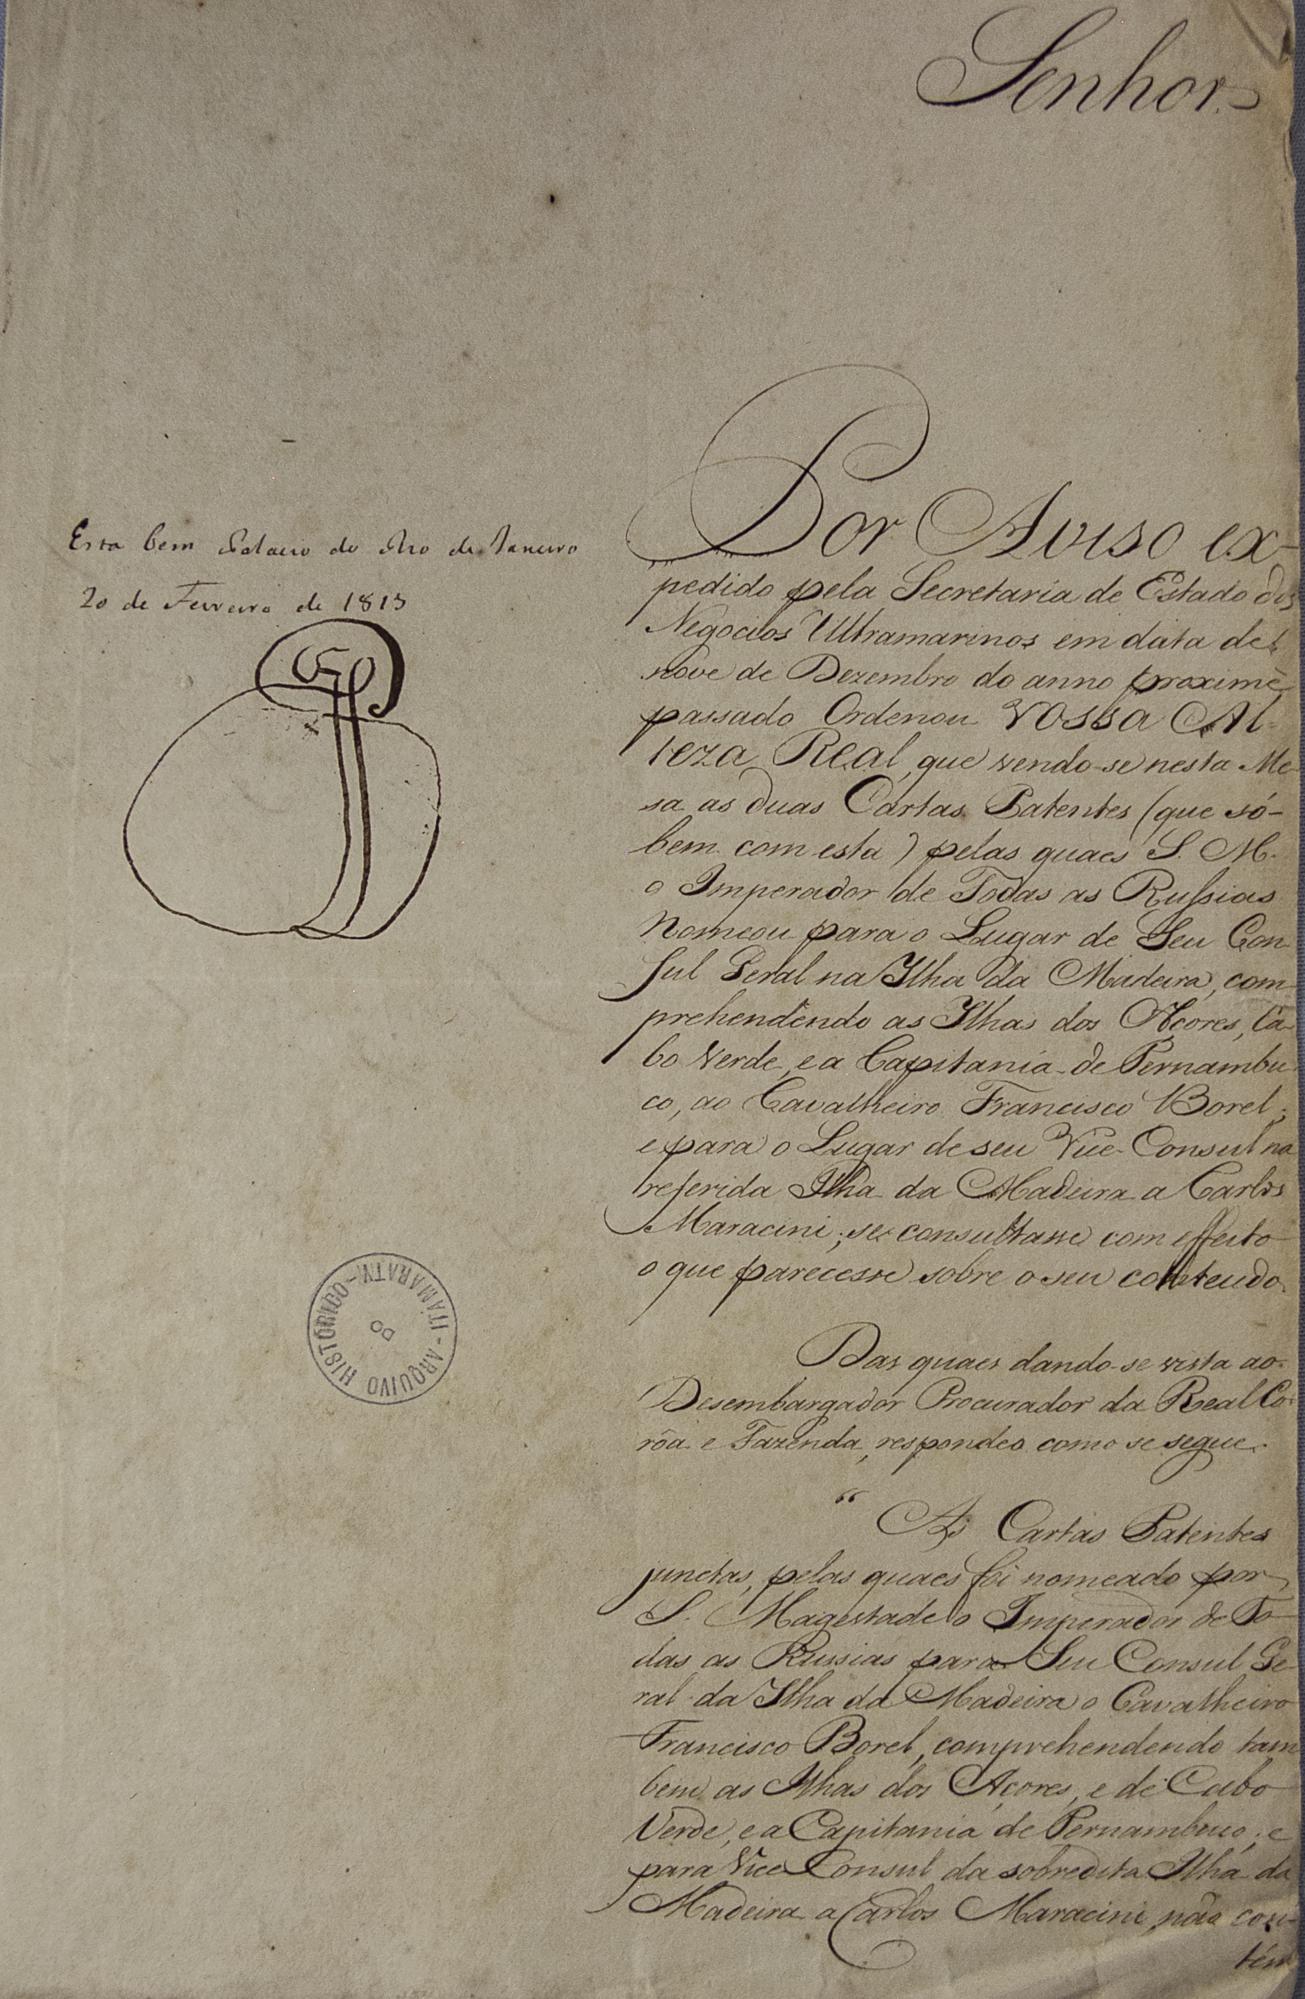 Senhor
Esta bem Palacio do Rio de Janeiro
20 de Fevereiro de 1813
Por Aviso ex-
pedido pela Secretaria de Estado dos
Negocios Ultramarinos em data de
nove de Dezembro do anno proximè
passado Ordenou VOSSA Al-
teza Real, que vendo-se nesta Me-
sa as duas Cartas Patentes (que só-
bem com esta) pelas quaes S. M.
o Imperador de Todas as Russias
Nomeou para o Lugar de Seu Con-
sul Geral na Ilha da Madeira, com-
prehendendo as Ilhas dos Açores, Ca-
bo Verde, e a Capitania de Pernambu-
co, ao Cavalheiro Francisco Borel;
e para o Lugar de seu Vice-Consul na
referida Ilha da Madeira a Carlos
Maracini; se consultasse com effeito
o que parecesse sobre o seu conteudo.
Das quaes dando-se vista ao
Desembargador Procurador da Real Co-
rôa e Fazenda, respondeo como se segue.
" As Cartas Patentes
junctas, pelas quaes foi nomeado por
S. Magestade o Imperador de To-
das as Russias para Seu Consul Ge-
ral da Ilha da Madeira o Cavalheiro
Francisco Borel, comprehendendo tam
bem as Ilhas dos Açores, e de Cabo
Verde, e a Capitania de Pernambuco; e
para Vice Consul da sobredita Ilha da
Madeira a Carlos Maracini, não con-
tém
ARQUIVO HISTÓRICO - DO - ITAMARATY